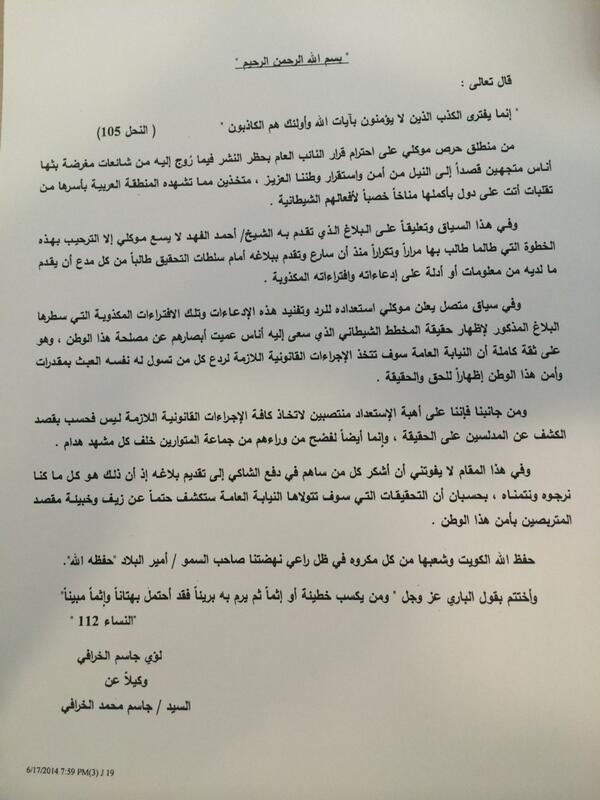 " بسم الله الرحمن الرحيم "
قال تعالى :
" إنما يفترى الكذب الذين لا يؤمنون بآيات الله وأولئك هم الكاذبون " ( النحل 105)
من منطلق حرص موكلي على احترام قرار النائب العام بحظر النشر فيما رُوج إليه من شائعات مغرضة بثها
أناس متجهين قصداً إلى النيل من أمن واستقرار وطننا العزيز ، متخذين مما تشهده المنطقة العربية بأسرها من
تقلبات أتت على دول بأكملها مناخاً خصباً لأفعالهم الشيطانية .
وفي هذا السياق وتعليقاً على البلاغ الذي تقدم به الشيخ/ أحمد الفهد لا يسع موكلي إلا الترحيب بهذه
الخطوة التي طالما طالب بها مراراً وتكراراً منذ أن سارع وتقدم ببلاغه أمام سلطات التحقيق طالباً من كل مدع أن يقدم
ما لديه من معلومات أو أدلة على إدعاءاته وإفتراءاته المكذوبة .
وفي سياق متصل يعلن موكلي استعداده للرد وتفنيد هذه الإدعاءات وتلك الافتراءات المكذوبة التي سطرها
البلاغ المذكور لإظهار حقيقة المخطط الشيطاني الذي سعى إليه أناس عميت أبصارهم عن مصلحة هذا الوطن ، وهو
على ثقة كاملة أن النيابة العامة سوف تتخذ الإجراءات القانونية اللازمة لردع كل من تسول له نفسه العبث بمقدرات
وأمن هذا الوطن إظهاراً للحق والحقيقة .
ومن جانبنا فإننا على أهبة الإستعداد منتصبين لاتخاذ كافة الإجراءات القانونية اللازمة ليس فحسب بقصد
الكشف عن المدلسين على الحقيقة ، وإنما أيضاً لفضح من وراءهم من جماعة المتوارين خلف كل مشهد هدام .
وفي هذا المقام لا يفوتني أن أشكر كل من ساهم في دفع الشاكي إلى تقديم بلاغه إذ أن ذلك هو كل ما كنا
نرجوه ونتمناه ، بحسبان أن التحقيقات التي سوف تتولاها النيابة العامة ستكشف حتماً عن زيف وخبيئة مقصد
المتربصين بأمن هذا الوطن .
حفظ الله الكويت وشعبها من كل مكروه في ظل راعي نهضتنا صاحب السمو / أمير البلاد "حفظه الله".
وأختتم بقول الباري عز وجل " ومن يكسب خطيئة أو إثماً ثم يرم به بريئاً فقد أحتمل بهتاناً وإثماً مبيناً"
"النساء 112 "
لؤي جاسم الخرافي
وكيلاً عن
السيد / جاسم محمد الخرافي
6/17/2014 7:59 PM(3) J 19